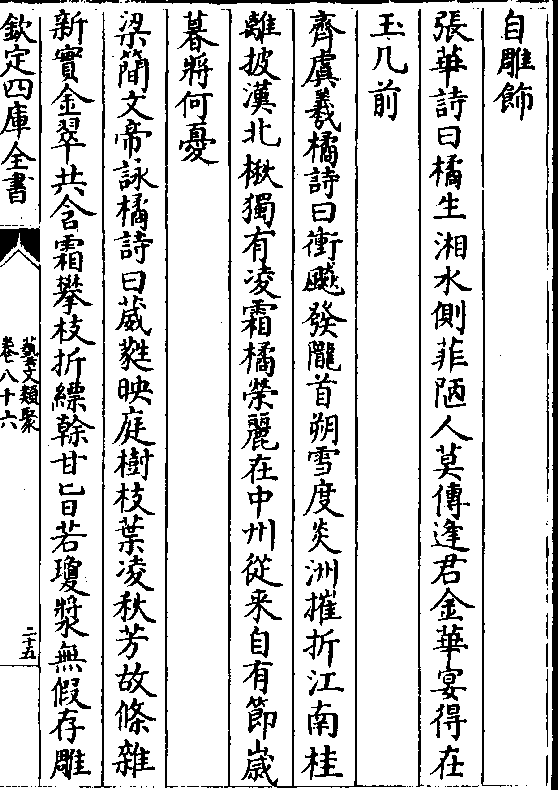 自雕飾
張華詩曰橘生湘水側菲陋人莫傳逢君金華宴得在
玉几前
齊虞羲橘詩曰衝飈發隴首朔雪度炎洲摧折江南桂
離披漠北楸獨有凌霜橘榮麗在中州從来自有節歲
暮將何憂
梁簡文帝詠橘詩曰葳蕤映庭樹枝葉凌秋芳故條雜
新實金翠共含霜攀枝折縹幹甘旨若瓊漿無假存雕
欽定四庫全書
藝文類聚
卷八十六
二十五